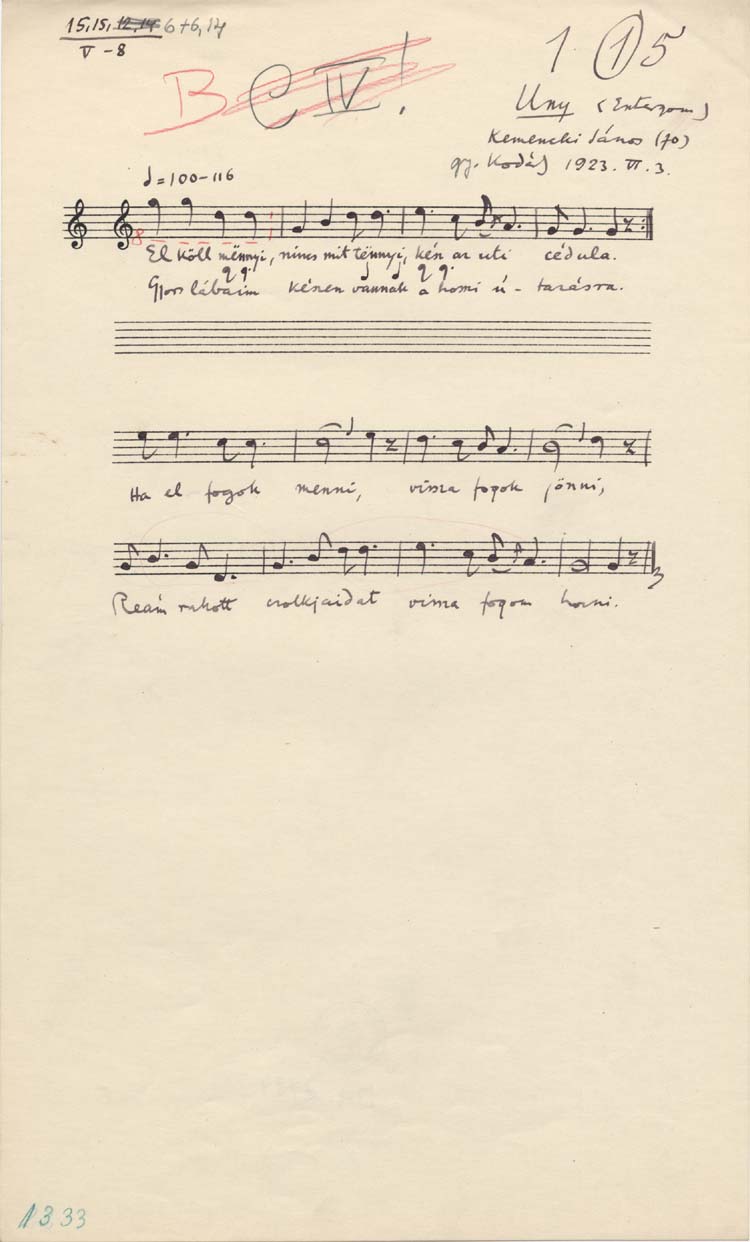 15, 15, 12, 14 6+6, 14
V - 8
1. 1 5
B C IV!
Uny (Esztergom)
Kemencki János (70)
gy. Kodály 1923. VI. 3.
= 100-116
8
El köll mënnyi, nincs mit tënnyi, kén az uti cédula.
Gyors lábaim készen vannak a hosszi ú - tazásra.
Ha el fogok menni, vissza fogok jönni,
Reám rakott csolkjaidat vissza fogom hozni.
13.33